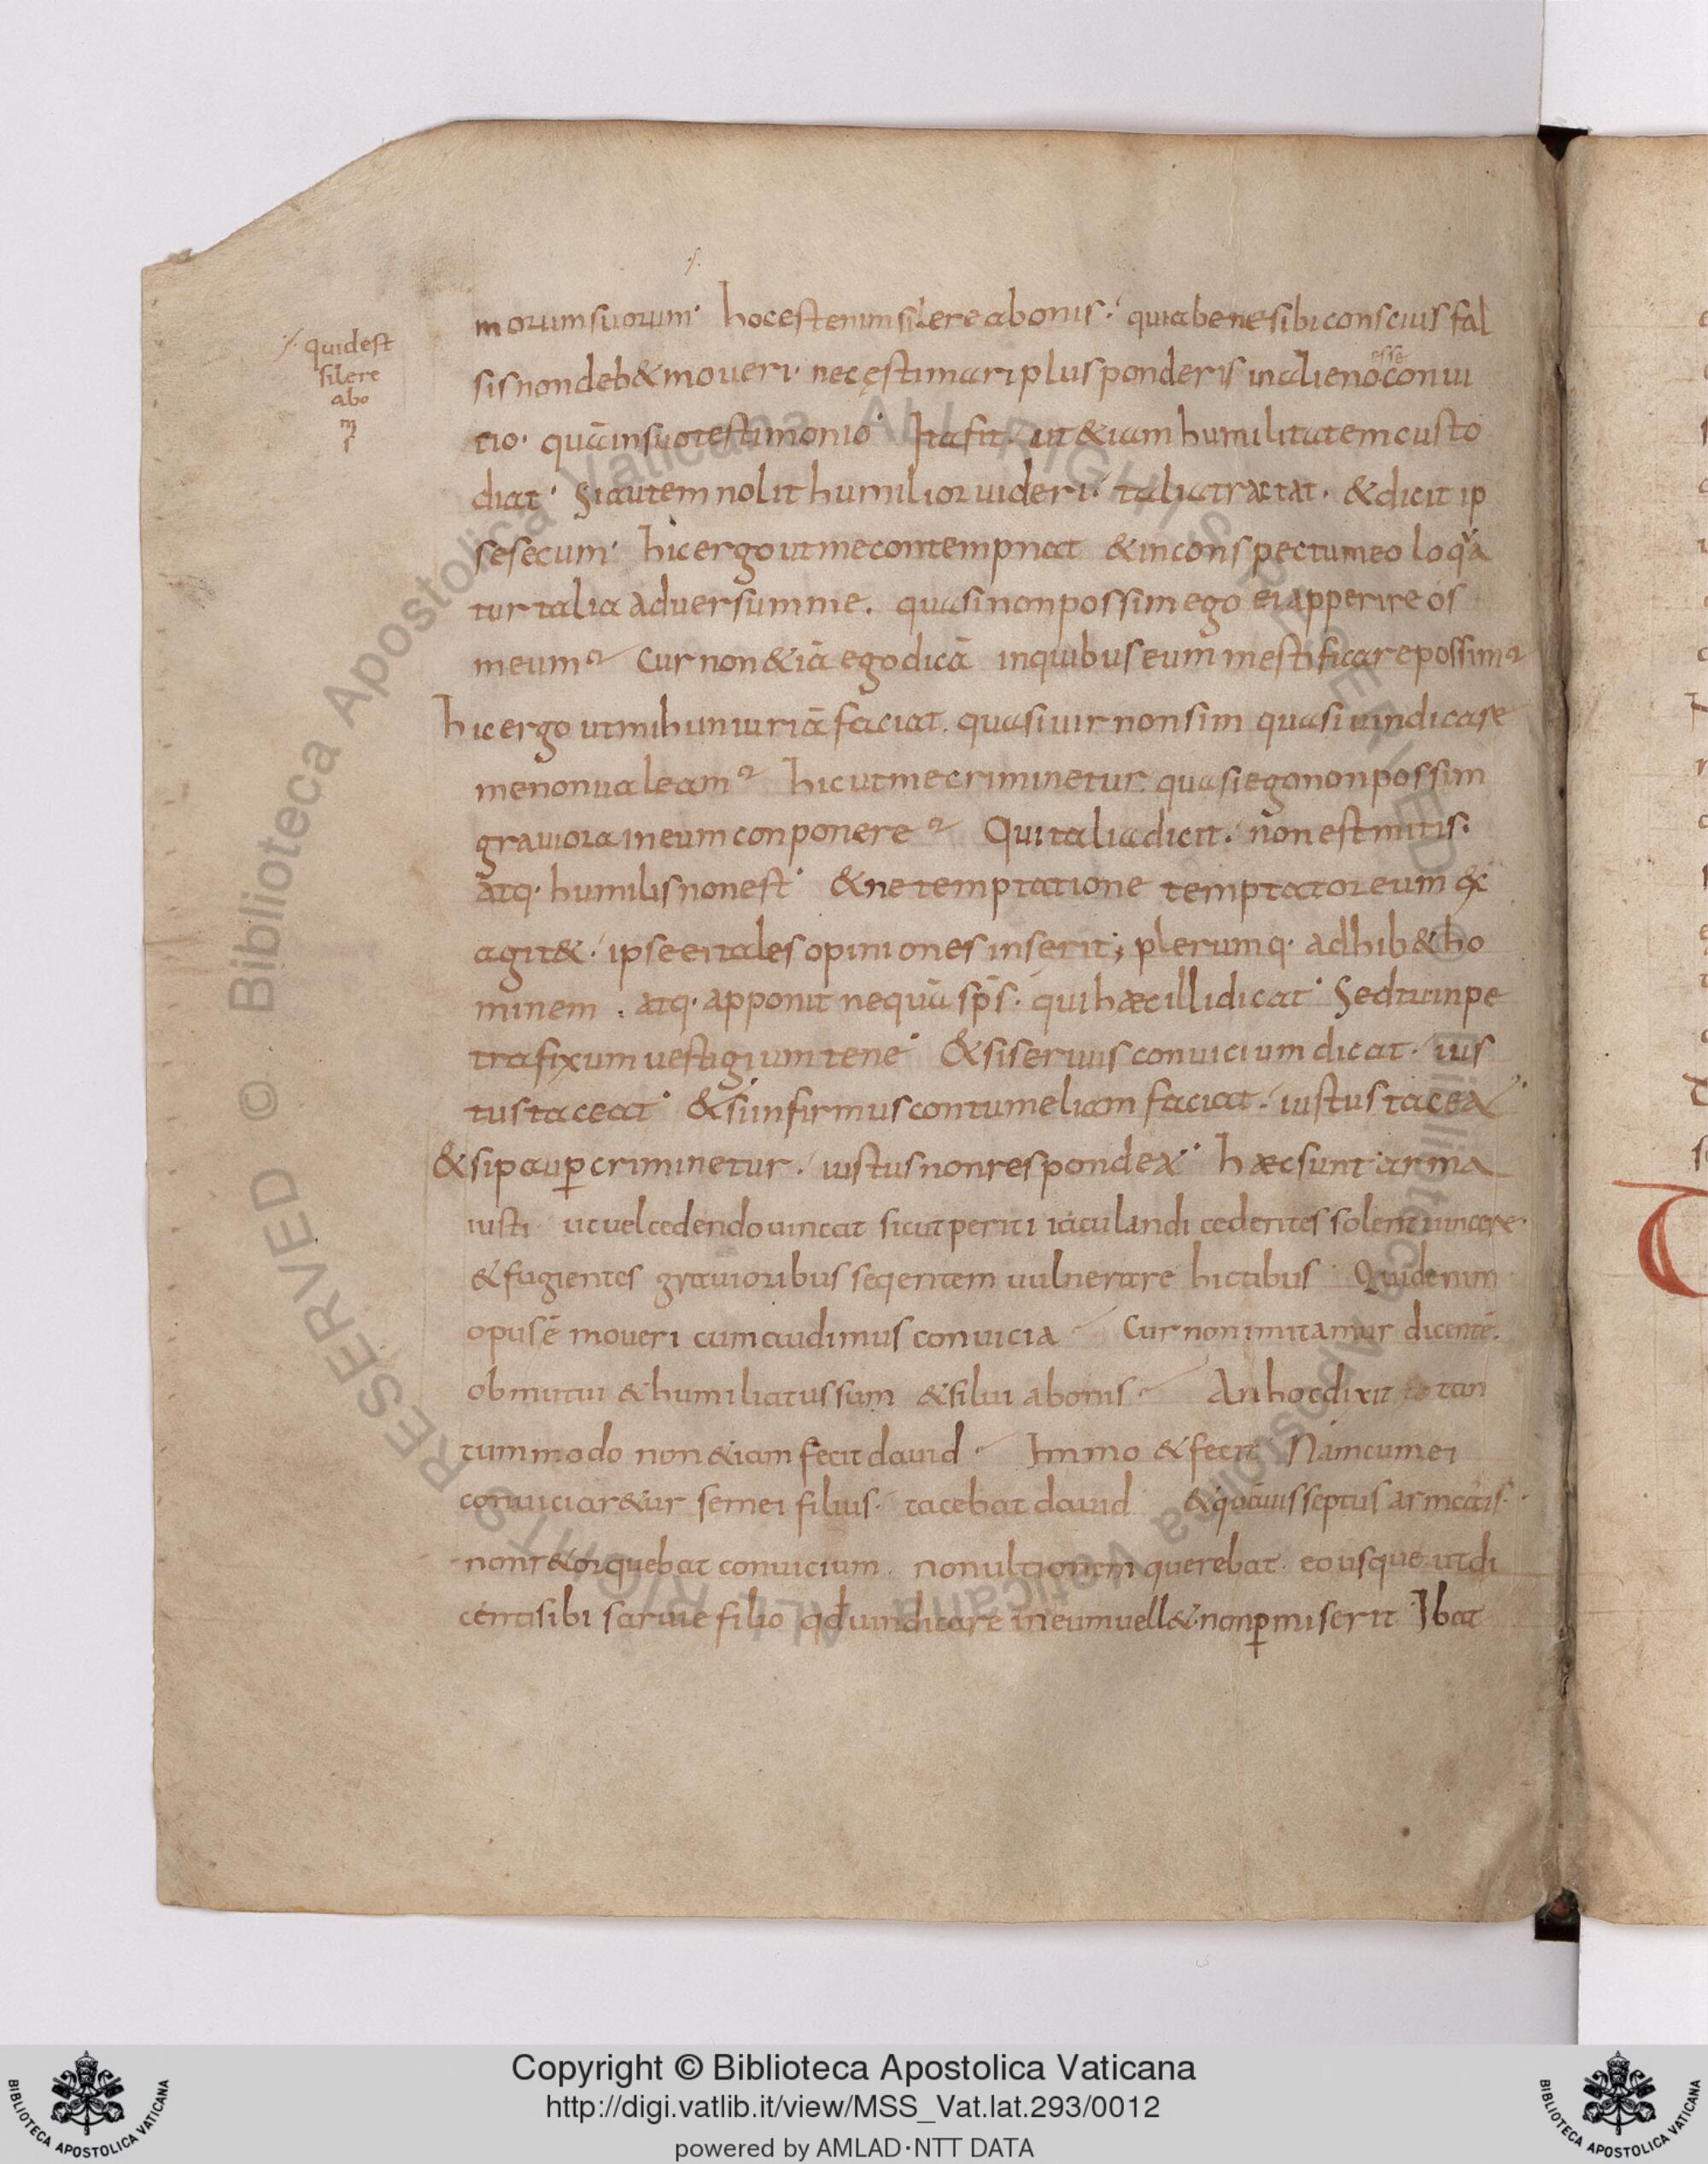 quid est
silere
abo
ni
s
morum suorum· hoc est enim silere a bonis· quia bene sibi conscius fal
sis non deb&moueri· nec ęstimari plus ponderis in alieno esse conui
tio· quā in suo testimonio· Ita fit· ut &iam humilitatem custo
diat· Si autem nolit humilior uideri· talia tractat· & dicit ip
se secum· hic ergo ut me contempnat & in conspectu meo loqua
tur talia aduersum me. quasi non possim ego ei apperire os
meum? Cur non &iā ego dicā in quibus eum mestificare possim?
hic ergo ut mihi iniuriā faciat. quasi uir non sim quasi uindicare
me non ualeam? hic ut me criminetur quasi ego non possim
grauiora in eum conponere? Qui talia dicit· non est mitis·
atq· humilis non est· & ne temptatione temptator eum ex
agit&· ipse ei tales opiniones inserit; plerumq· adhib& ho
minem. atq· apponit nequā sp̄s· qui hæc illi dicat· Sed tu in pe
tra fixum uestigium tene· & si seruus conuicium dicat· ius
tus taceat· & si infirmus contumeliam faciat· iustus tace&·
& si paup criminetur· iustus non responde&· hæc sunt arma
iusti ut uel cedendo uincat sicut periti iaculandi cedentes solent uincere·
& fugientes grauioribus seqentem uulnerare hictibus· Quid enim
opus ē moueri cum audimus conuicia Cur non imitamur dicentē·
obmutui & humiliatus sum & silui a bonis· An hoc dixit tan
tummodo non &iam fecit dauid· Immo & fecit Nam cum ei
conuiciar&ur semei filius· tacebat dauid & quāuis septus armatis·
non r&orquebat conuicium. non ultionem querebat· eo usque ut di
centi sibi saruie filio qđ uindicare in eum uell& non pmiserit Ibat
Biblioteca Apostolica Vaticana ALL RIGHTS RESERVED ©
Copyright © Biblioteca Apostolica Vaticana
http://digi.vatlib.it/view/MSS_Vat.lat.293/0012
powered by AMLAD·NTT DATA
BIBLIOTECA APOSTOLICA VATICANA
BIBLIOTECA APOSTOLICA VATICANA